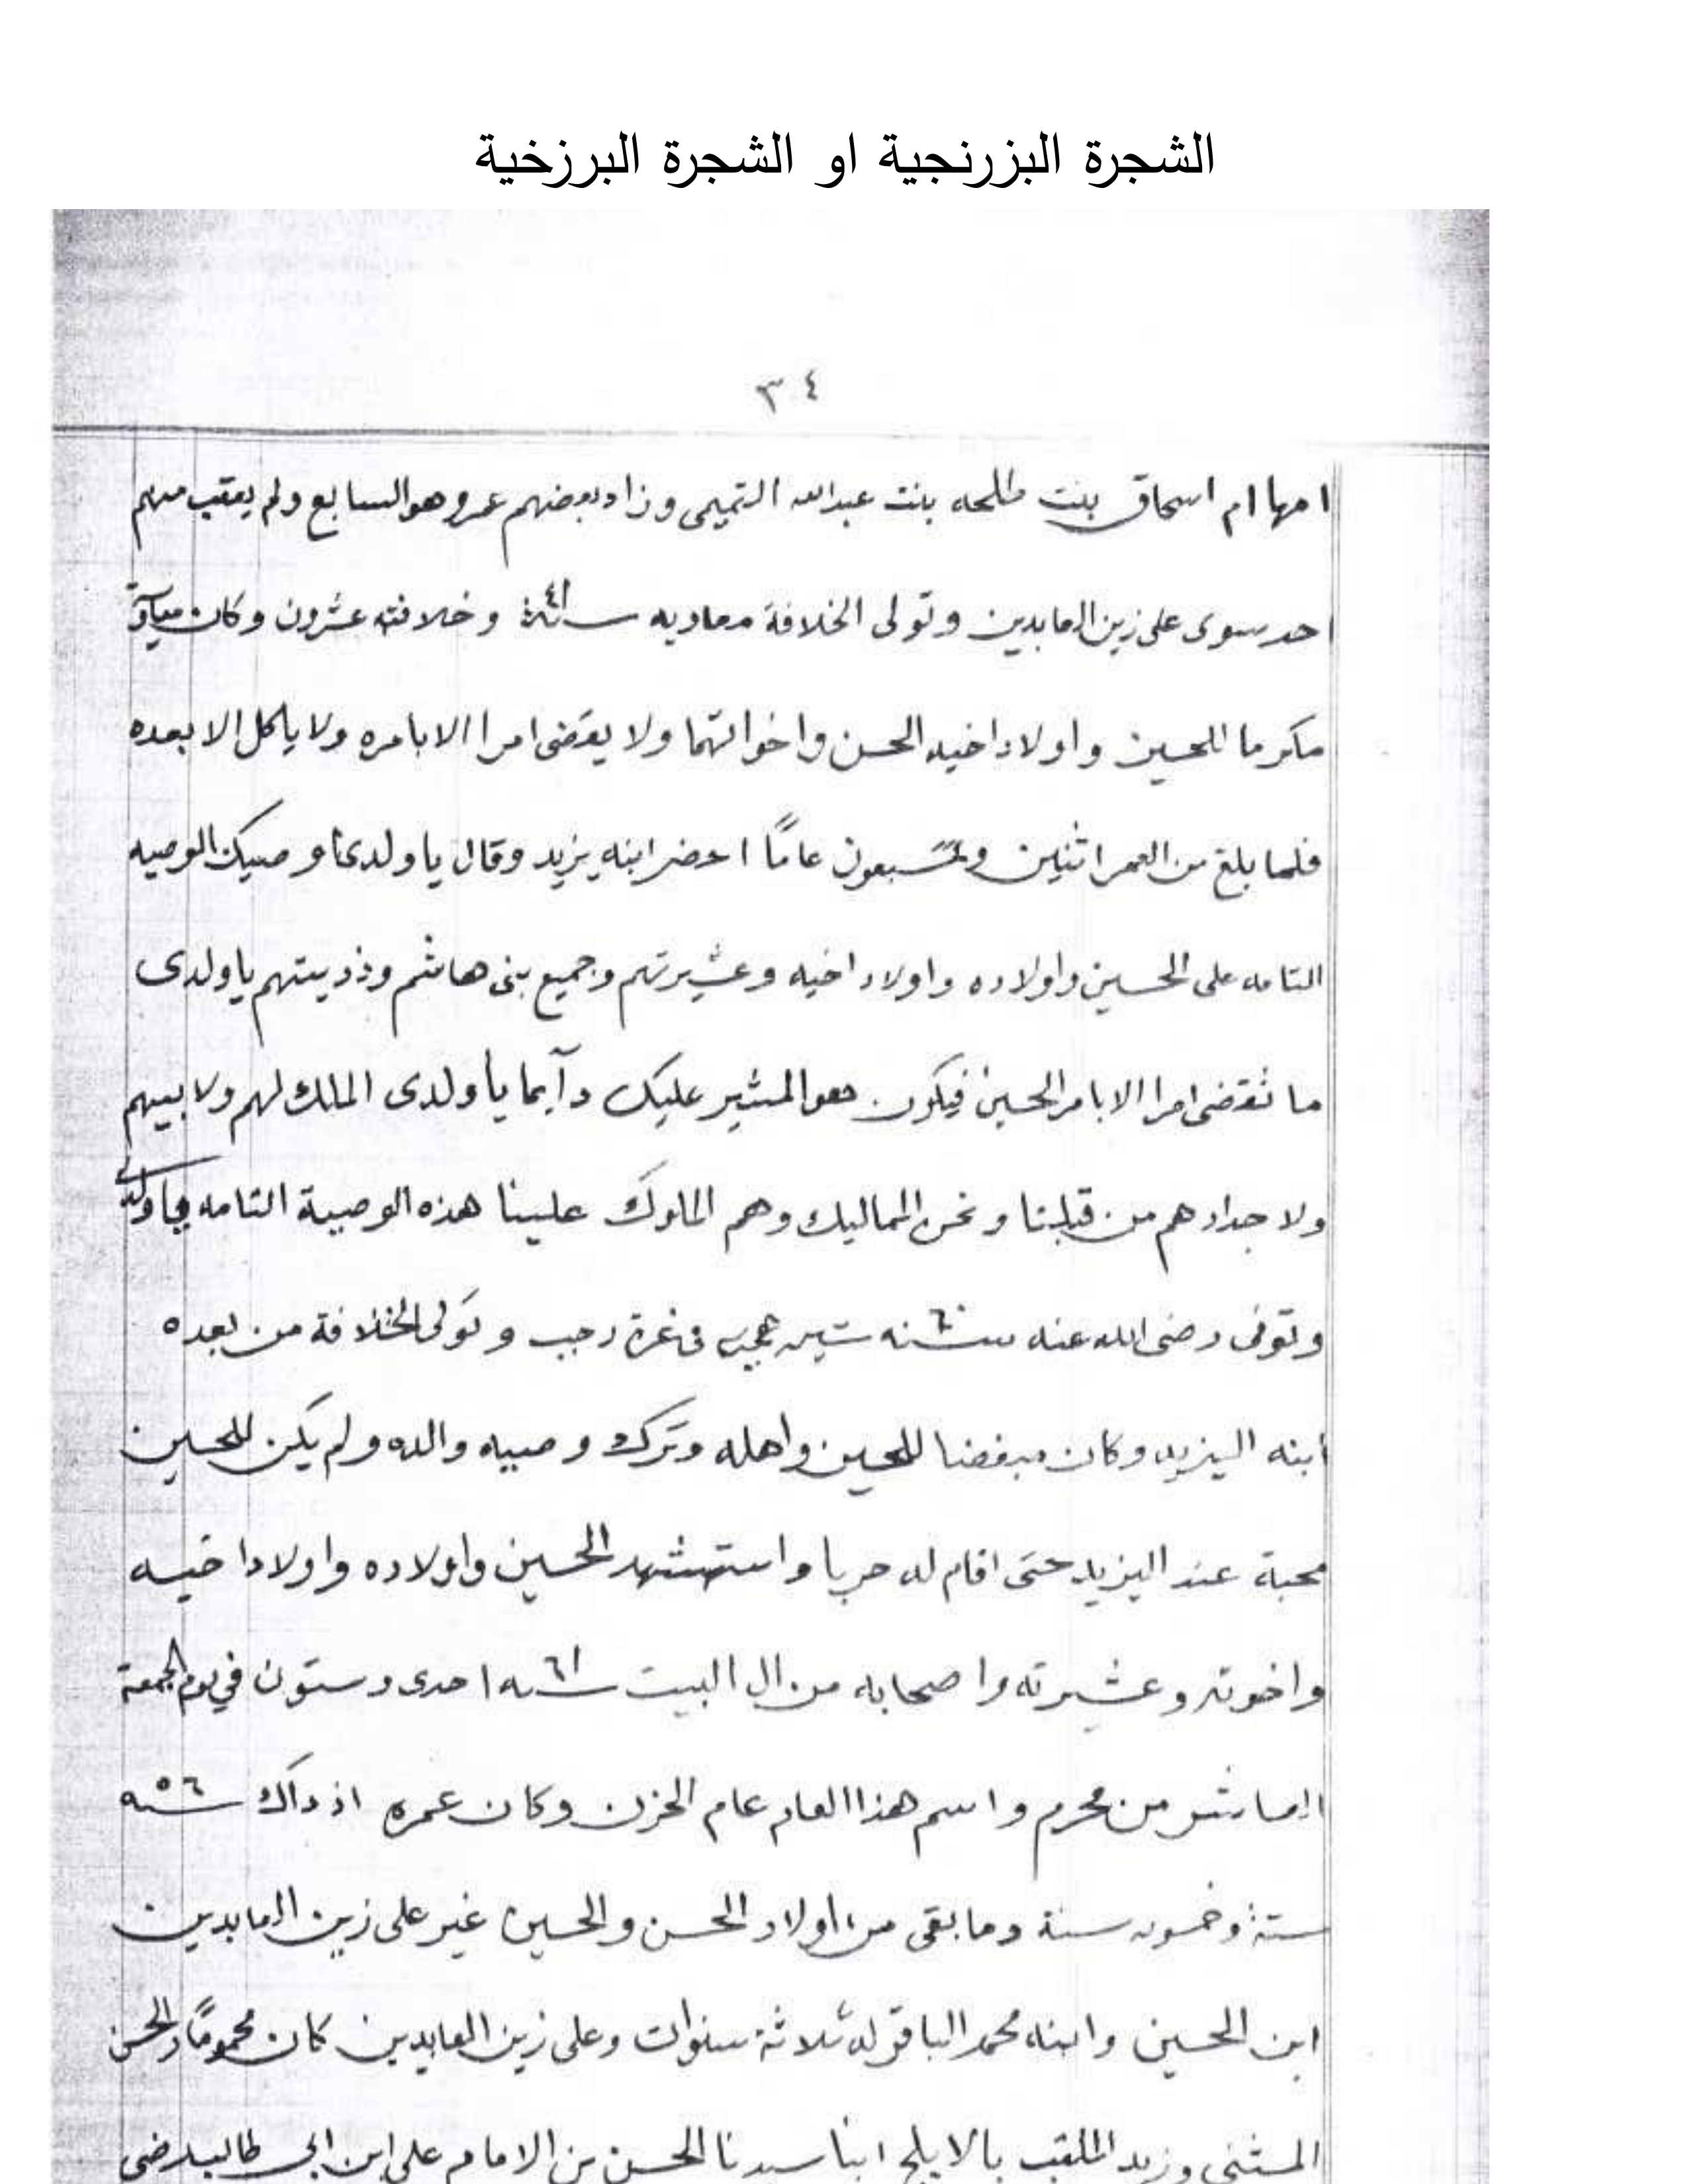 الشجرة البزرنجية او الشجرة البرزخية
٣٤
امها ام اسحاق بنت طلحه بنت عبدالله التميمى وزاد بعضهم عمر وهو السابع ولم يعقب منهم
احد سوى على زين العابدين وتولى الخلافة معاويه سنة ٤١ وخلافته عشرون وكان
مكرما للحسين واولاد اخيه الحسن واخوانهما ولا يقضى امرا الا بامره ولا ياكل الا بعده
فلما بلغ من العمر اثنين وسبعون عامًا احضر ابنه يزيد وقال يا ولدى اوصيك الوصيه
التامه على الحسين واولاده واولاد اخيه وعشيرتهم وجميع بنى هاشم وذريتهم يا ولدى
ما تقضى امرا الا بامر الحسين فيكون هو المشير عليك دآيما يا ولدى الملك لهم ولابيهم
ولاجدادهم من قبلنا ونحن المماليك وهم الملوك علينا هذه الوصية التامه يا ولدى
وتوفى رضى الله عنه سنه ٦٠ ستين هجريه فى غرة رجب وتولى الخلافة من بعده
ابنه اليزيد وكان مبغضا للحسين واهله وترك وصيه والده ولم يكن للحسين
محبة عند اليزيد حتى اقام له حربا واستشهد الحسين واولاده واولاد اخيه
واخوته وعشيرته واصحابه من ال البيت سنه ٦١ احدى وستون في يوم الجمعة
العاشر من محرم واسم هذا العام عام الحزن وكان عمره اذ داك ٥٦ سنه
ستة وخمسون سنة وما بقى من اولاد الحسن والحسين غير على زين العابدين
ابن الحسين وابنه محمد الباقر له ثلاثة سنوات وعلى زين العابدين كان محمومًا والحسن
المثنى وزيد الملقب بالابلج ابنا سيدنا الحسن بن الامام على ابن ابى طالب رضى